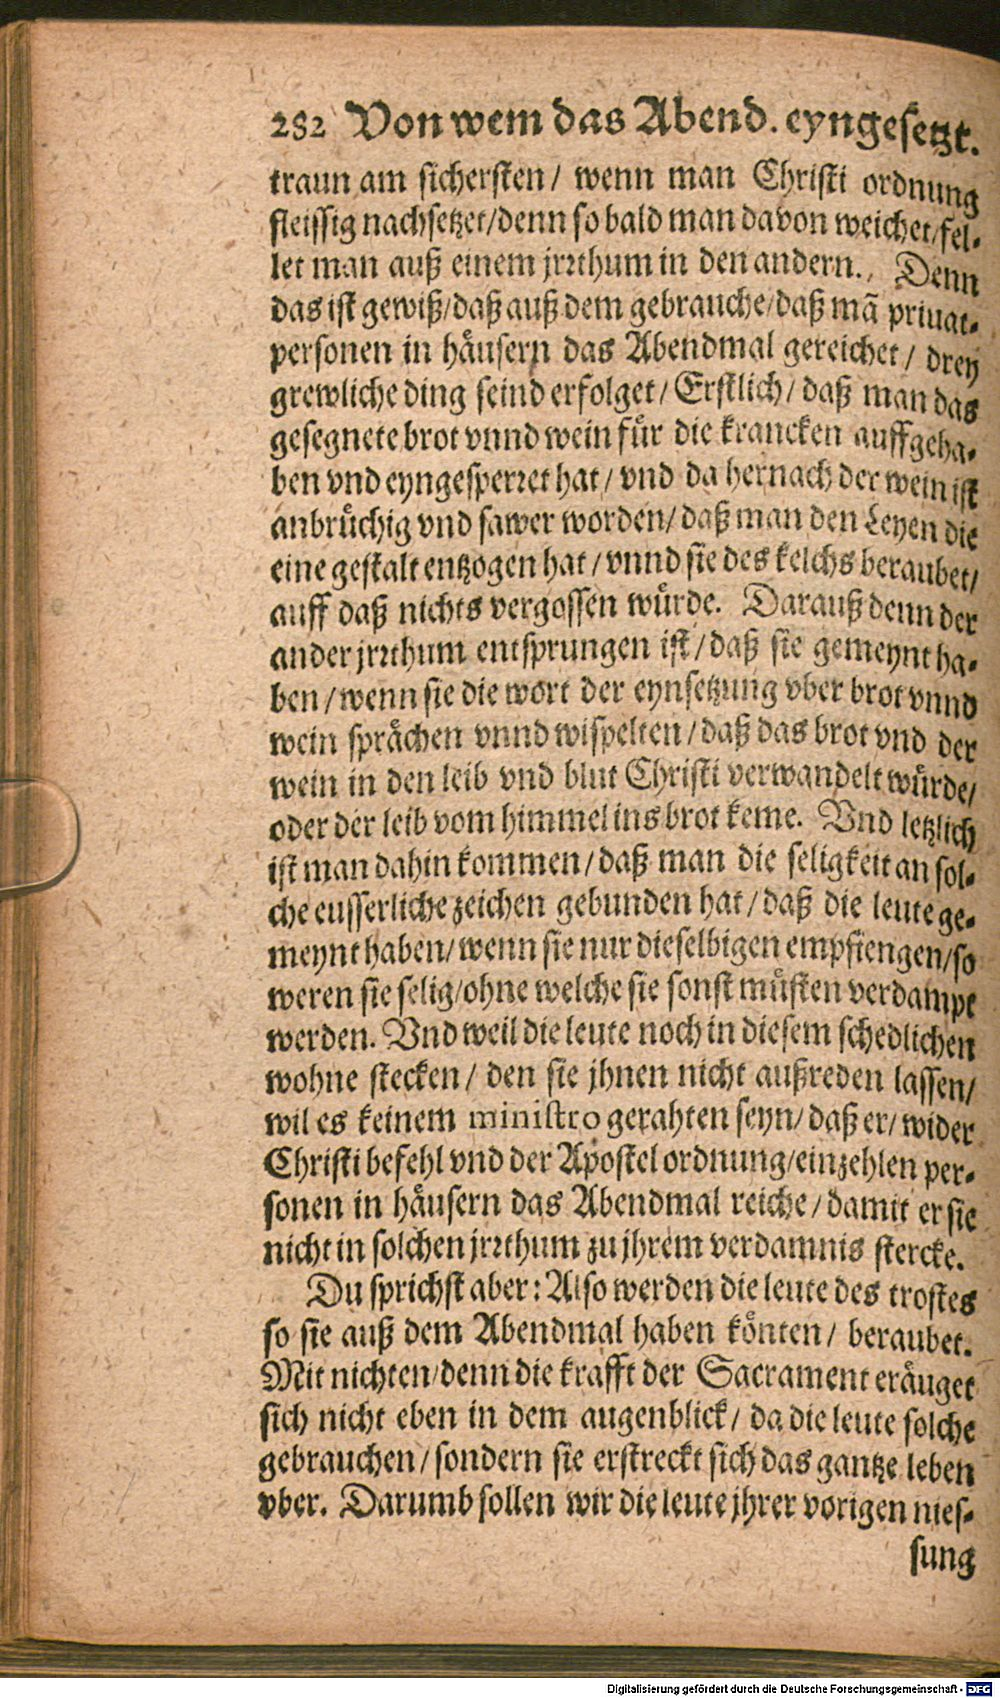 282 Von wem das Abend. eyngesetzt.
traun am sichersten/ wenn man Christi ordnung
fleissig nachsetzet/denn so bald man davon weichet/fel-
let man auß einem jrrthum in den andern. Denn
das ist gewiß/daß auß dem gebrauche/daß mã priuat-
personen in häusern das Abendmal gereichet/ drey
grewliche ding seind erfolget/ Erstlich/ daß man das
gesegnete brot vnnd wein für die krancken auffgeha-
ben vnd eyngesperret hat/ vnd da hernach der wein ist
anbrüchig vnd sawer worden/ daß man den Leyen die
eine gestalt entzogen hat/ vnnd sie des kelchs beraubet/
auff daß nichts vergossen würde. Darauß denn der
ander jrrthum entsprungen ist/ daß sie gemeynt ha-
ben/ wenn sie die wort der eynsetzung vber brot vnnd
wein sprächen vnnd wispelten/ daß das brot vnd der
wein in den leib vnd blut Christi verwandelt würde/
oder der leib vom himmel ins brot keme. Vnd letzlich
ist man dahin kommen/ daß man die seligkeit an sol-
che eusserliche zeichen gebunden hat/ daß die leute ge-
meynt haben/ wenn sie nur dieselbigen empfiengen/so
weren sie selig/ohne welche sie sonst müsten verdampt
werden. Vnd weil die leute noch in diesem schedlichen
wohne stecken/ den sie jhnen nicht außreden lassen/
wil es keinem ministro gerahten seyn/ daß er/ wider
Christi befehl vnd der Apostel ordnung/einzehlen per-
sonen in häusern das Abendmal reiche/ damit er sie
nicht in solchen jrrthum zu jhrem verdamnis stercke.
Du sprichst aber: Also werden die leute des trostes
so sie auß dem Abendmal haben könten/ beraubet.
Mit nichten/denn die krafft der Sacrament eräuget
sich nicht eben in dem augenblick/ da die leute solche
gebrauchen/ sondern sie erstreckt sich das gantze leben
vber. Darumb sollen wir die leute jhrer vorigen nies-
sung
Digitalisierung gefördert durch die Deutsche Forschungsgemeinschaft - DFG